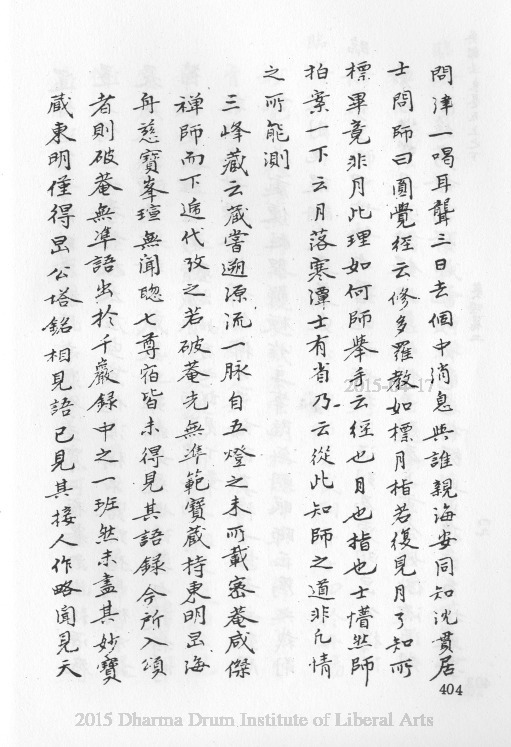 問津一喝耳聾三日去個中消息與誰親海安同知沈貫居
士問師曰圓覺經云修多羅教如標月指若復見月了知所
標畢竟非月此理如何師舉手云經也月也指也士懵然師
拍案一下云月落寒潭士有省乃云從此知師之道非凡情
之所能測
三峰藏云藏嘗遡源流一脉自五燈之未所載密菴咸傑
禅師而下遞代攷之若破菴先無準範寶藏持東明旵海
舟慈寶峯瑄無聞聰七尊宿皆未得見其語録今所入頌
者則破菴無準語出於千巖録中之一班然未盡其妙寶
蔵東明僅得旵公塔銘相見語已見其接人作略聞見天
404
2015-04-17
2015 Dharma Drum Institute of Liberal Arts